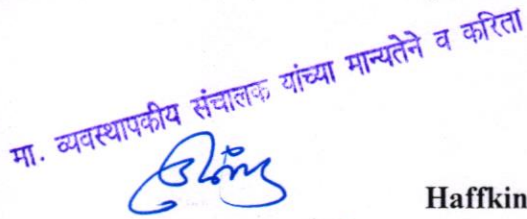 मा. व्यवस्थापकीय संचालक यांच्या मान्यतेने व करिता
Haffkin